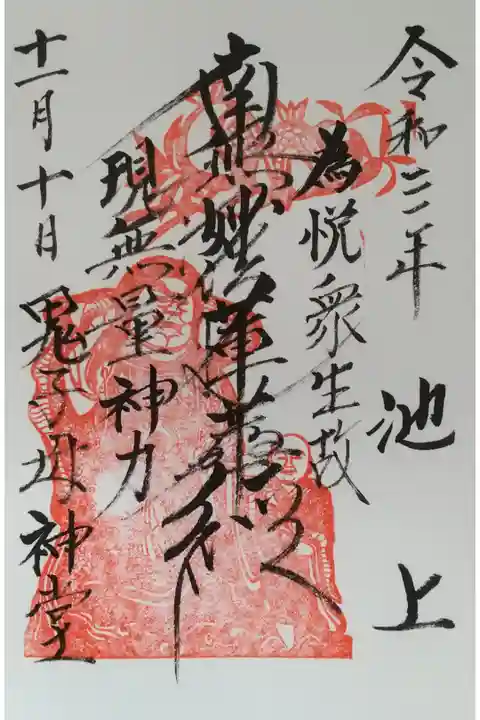 令和三年
池上
為悦衆生故
南無妙法蓮華経
現無量神力
十一月十日
鬼子母神堂